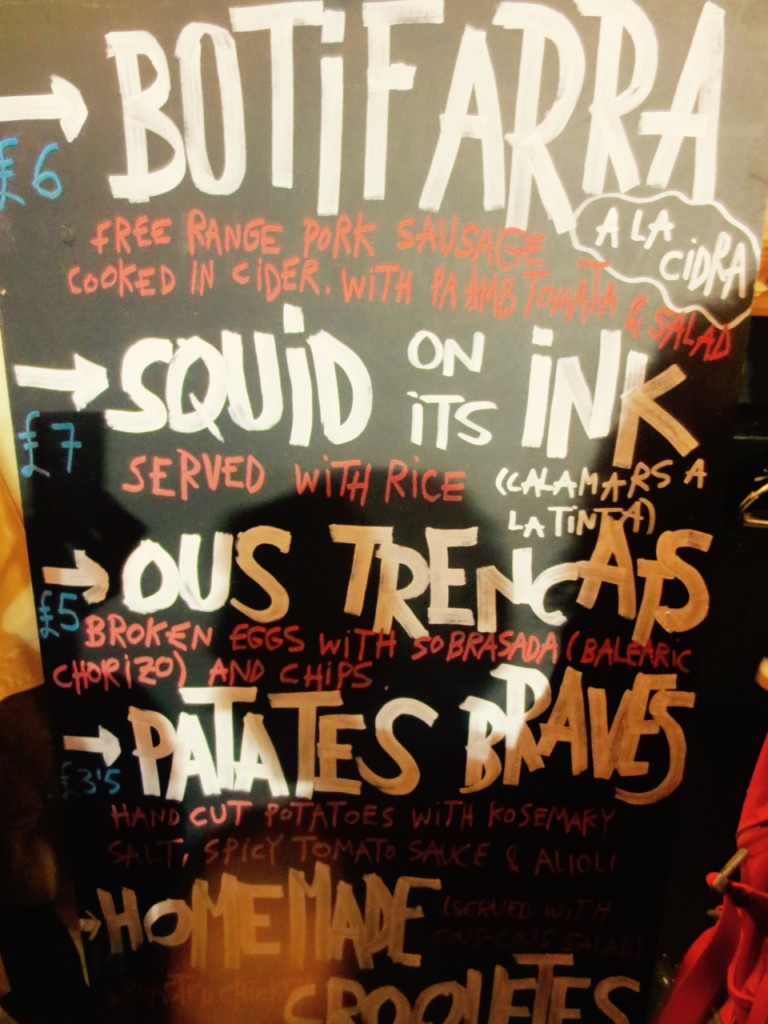 BOTiFARRA
£6
FREE RANGE PORK SAUSAGE
A LA
CiDRA
COOKED IN CiDER. WiTH PA AMB TOMATA & SALAD
SQUiD ON iTS iNK
£7
SERVED WiTH RICE (CALAMARS A
LA TINTA)
OUS TRENCATS
£5
BROKEN EGGS WITH SOBRASADA (BALEARIC
CHORiZO) AND CHIPS.
PATATES BRAVES
£3'5
HAND CUT POTATOES WITH ROSEMARY
SALT, SPICY TOMATO SAUCE & ALIOLI
HOMEMADE (SERVED WITH
COUS-COUS SALAD)
CROQUETES